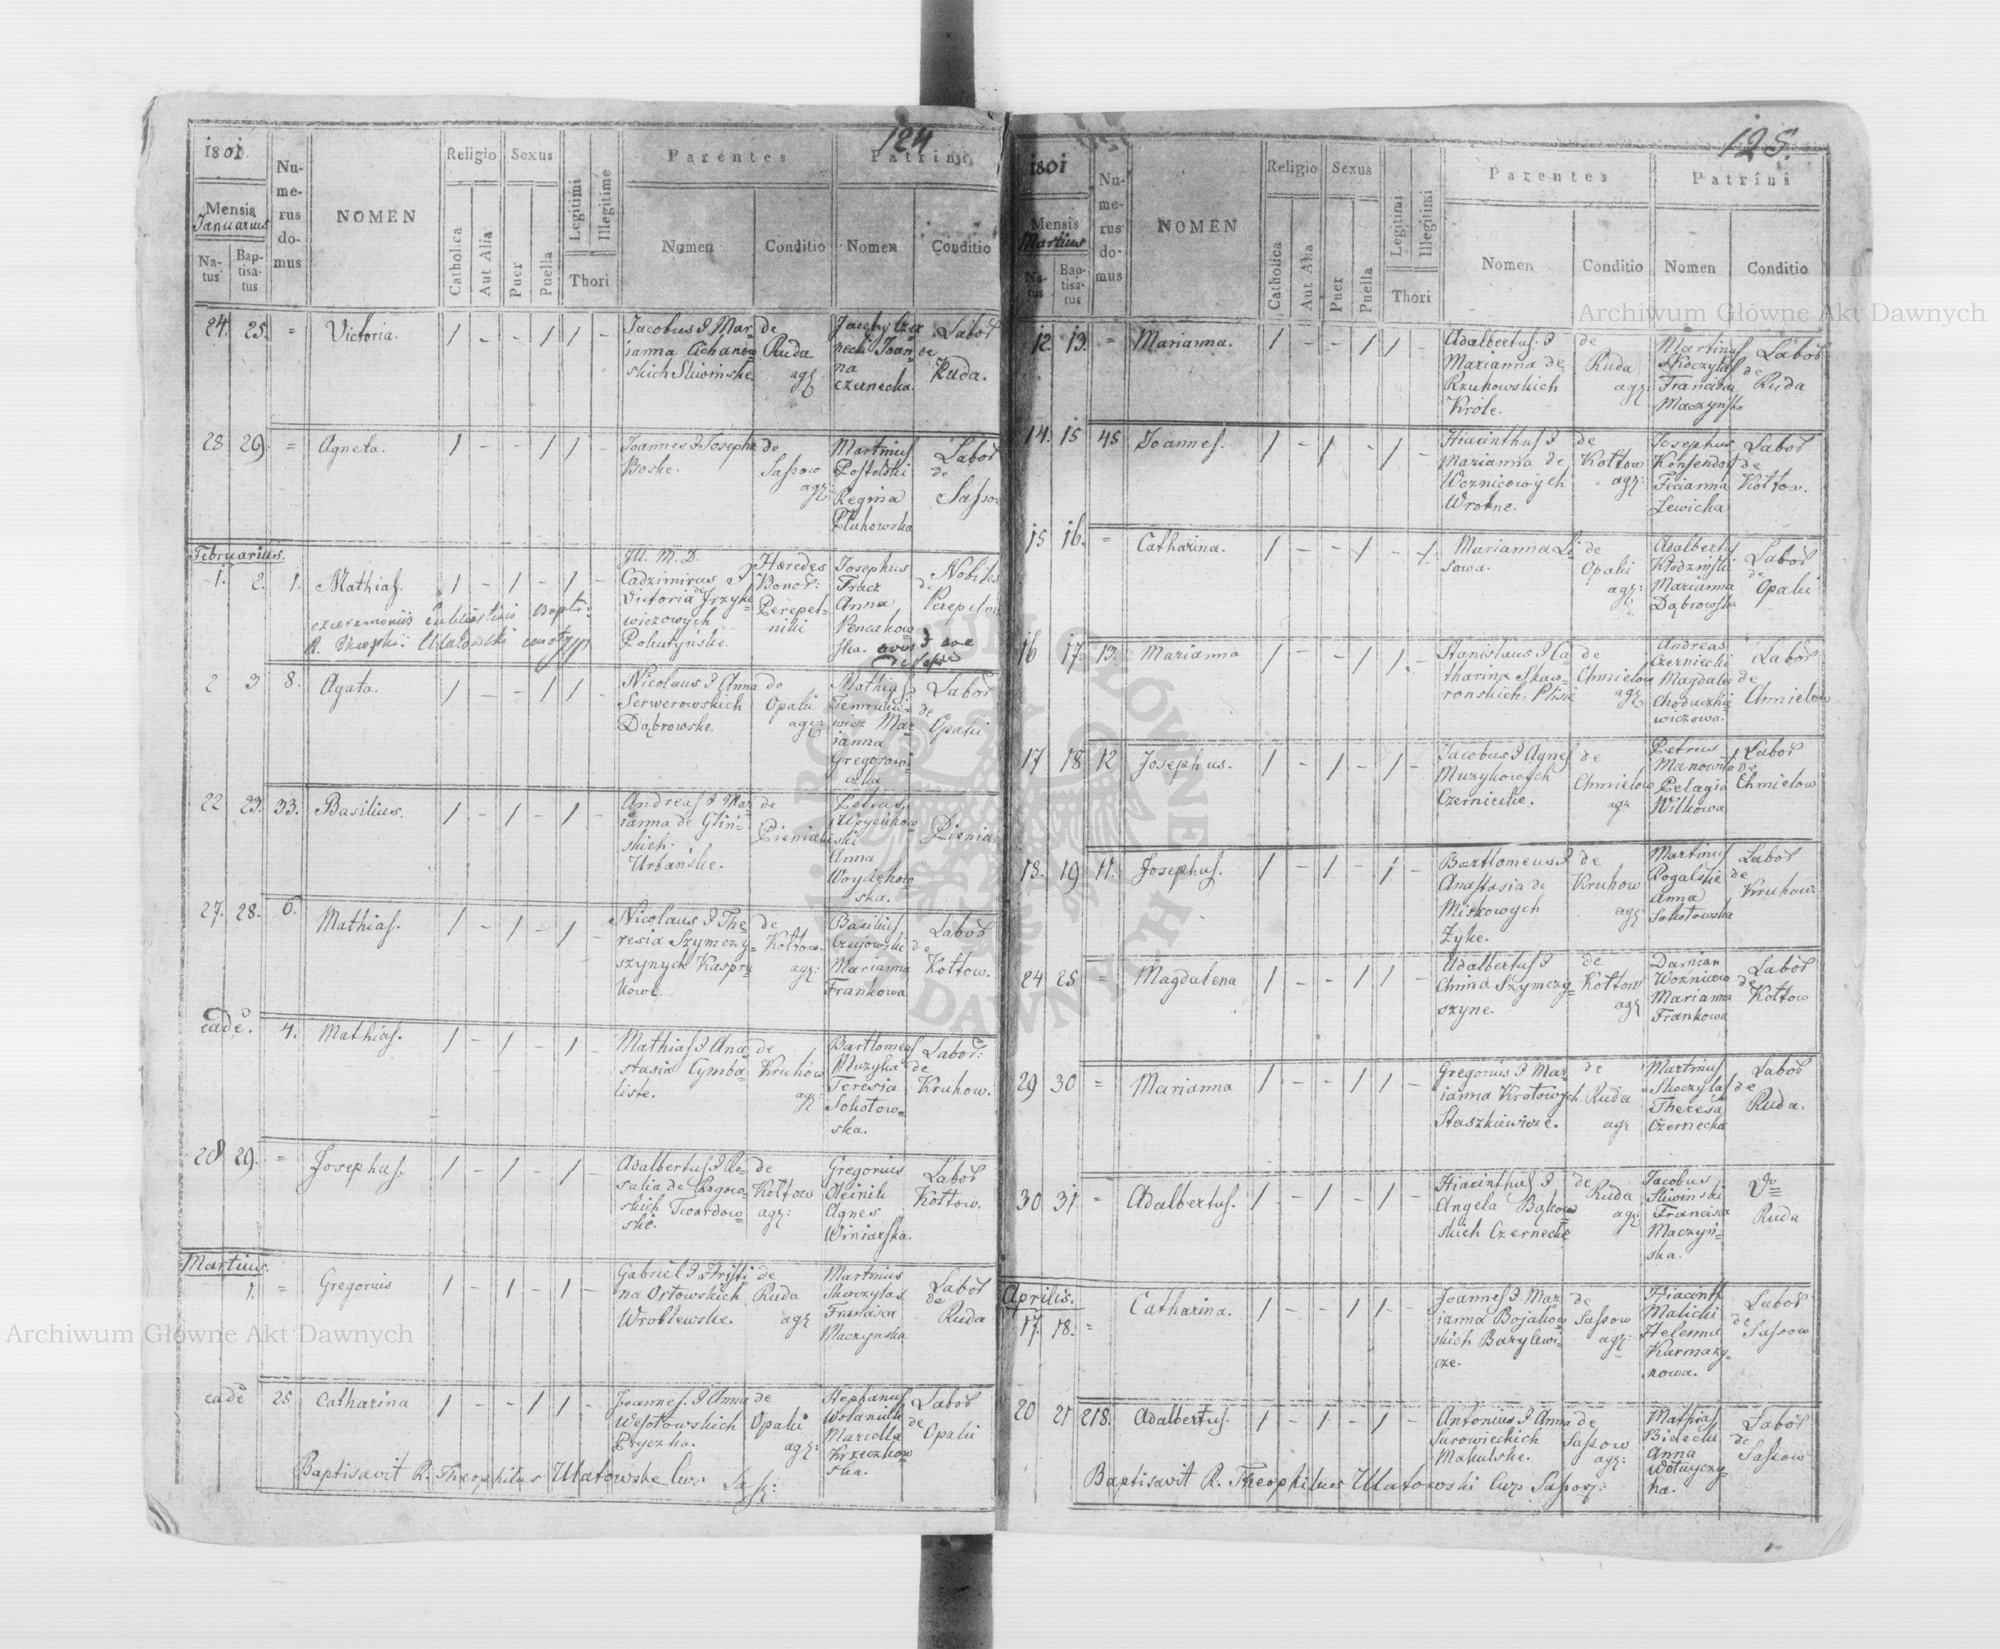 124
1801.
Mensis
Januarius
Na-
tus
Bap-
tisa-
tus
Nu-
me-
rus
do-
mus
NOMEN
Religio
Catholica
Aut Alia
Sexus
Puer
Puella
Legitimi
Illegitime
Thori
Parentes
Nomen
Conditio
Patrini
Nomen
Conditio
24. 25. = Victoria. 1 - - 1 1 -
Jacobus & Mar
janna
skich Sliwinske.
de
Ruda
agr:
Joan
na
czernecka.
Labor
de
Ruda.
28 29. = Agneta. 1 - - 1 1 -
Joannes & Josepha
Boske.
de
Sassow
agr:
Martinus
Postolski
Regina
Pluhowska
Labor
de
Sassow
Februarius.
1. 2. 1. Mathias. 1 - 1 - 1 -
Jll. M. D.
Cadzimirus &
Victoria de Jrzyke
wiczowych
Pohutynske.
Hæredes
Bonor:
Perepel-
niki
Josephus
Fracz
Anna
ska.
Nobiles
de
2 3 8. Agata. 1 - - 1 1 -
Nicolaus & Anna
Serwerowskich
Dąbrowske.
de
Opaki
agr:
Mathias
wicz Mar
ianna
Gregorowi
czka
Labor
de
Opaki
22 23. 33. Basilius. 1 - 1 - 1 -
Andreas & Mar
ianna de Gliń-
skich.
Urbańske.
de
Pieniaki
Petrus
ski
Anna
Woyciechow
ska.
Pieniaki
27. 28. 6. Mathias. 1 - 1 - 1 -
Nicolaus & The
resia Szymczy-
szynych Kaspry
kowe.
de
Koltow.
agr:
Basilius
Czajowski
Marianna
Frankowa
Labor
de
Koltow.
eadē. 4. Mathias. 1 - 1 - 1 -
Mathias & Ana
stasia Cymba
liste.
de
Kruhow
agr:
Bartlomeus
Muzyka
Teresia
Sokołow-
ska.
Labor:
de
Kruhow.
28 29. = Josephus. 1 - 1 - 1 -
Adalbertus & Ro-
salia de Rogow-
skich Twardow-
ske.
de
Koltow
agr:
Gregorius
Oleinik
Agnes
Winiarska.
Labor
Koltow.
Martius.
1. = Gregorius 1 - 1 - 1 -
Gabriel & Kristi
na Orłowskich
Wroblewske.
de
Ruda
agr
Martinus
Skoczylas
Francisca
Maczynska
Labor
de
Ruda
eadē 25 Catharina 1 - - 1 1 -
Joannes & Anna
Wesołowskich
Pryczka.
de
Opaki
agr:
Stephanus
Marcella
Krzeczkow
ska.
Labor
de
Opaki
Baptisavit R. Theophilus Ulatowske Cur: Sass:
125.
1801
Mensis
Martius
Na-
tus
Bap-
tisa-
tus
Nu-
me-
rus
do-
mus
NOMEN
Religio
Catholica
Aut Alia
Sexus
Puer
Puella
Legitimi
Illegitimi
Thori
Parentes
Nomen
Conditio
Patrini
Nomen
Conditio
12. 13. = Marianna. 1 - - 1 1 -
Adalbertus. &
Marianna de
Rzuhowskich
Krole.
de
Ruda
agr:
Martinus
Skoczylas
Francisca
Maczynska
Labor
de
Ruda
14. 15 45 Joannes. 1 - 1 - 1 -
Hiacinthus &
Marianna de
Woznicowych
Wrotne.
de
Koltow
agr:
Josephus
Felicianna
Lewicka
Labor
de
Koltow.
15 16. = Catharina. 1 - - 1 - 1.
Marianna Li
sowa.
de
Opaki
agr:
Adalbertus
Kłodzinski
Marianna
Dąbrowska
Labor
de
Opaki
16 17. 13. Marianna 1 - - 1 1. -
Stanislaus & Ca
tharina Skaw-
ronskich Plisie
de
Chmielow
agr
Andreas
Czerniecki
Magdalena
wiczowa.
Labor
de
Chmielow
17 18 12 Josephus. 1 - 1 - 1 -
Jacobus & Agnes
Muzykowych
Czernieckie.
de
Chmielow
agr
Petrus
Pelagia
Wilkowa
Labor
de
Chmielow
18. 19 11. Josephus. 1 - 1 - 1 -
Bartlomeus &
Anastasia de
Miskowych
Zyke.
de
Kruhow
agr
Martinus
Rogalski
Anna
Sokołowska
Labor
de
Kruhow.
24 25 = Magdalena 1 - - 1 1 -
Adalbertus &
Anna Szymczy-
szyne.
de
Koltow
agr
Damian
Woznicow
Marianna
Frankowa
Labor
de
Koltow
29 30 = Marianna 1 - - 1 1 -
Gregorius & Mar
ianna Krotowych
Staszkiewicze.
de
Ruda
agr
Martinus
Skoczylas
Theresa
Czernecka
Labor
de
Ruda.
30 31 = Adalbertus. 1 - 1 - 1 -
Hiacinthus &
Angela Bąkow
skich Czernecke
de
Ruda
agr
Jacobus
Sliwinski
Francisca
Maczyn-
ska.
Do
Ruda
Aprilis.
17. 18. = Catharina. 1 - - 1 1 -
Joannes & Mar
ianna Bojakow
skich Bazylewi-
cze.
de
Sassow
agr:
Hiacinth
Malicki
Helenna
Karmazy-
nowa.
Labor
de
Sassow
20 21 218. Adalbertus. 1 - 1 - 1 -
Antonius & Anna
Surowieckich
Makulske.
de
Sassow
agr:
Mathias
Bielecki
Anna
Wołuyczy-
ka.
Labor
de
Sassow
Baptisavit R. Theophilus Ulatowski Cur. Sassov:
Archiwum Główne Akt Dawnych
Archiwum Główne Akt Dawnych
ARCHIWUM GŁÓWNE AKT DAWNYCH